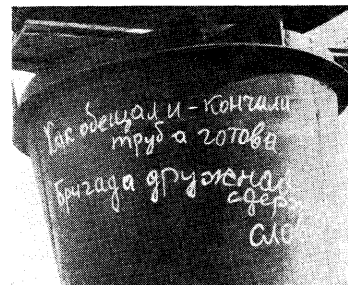 Как обещали - кончили
труба готова
Бригада дружная
сдер
сло